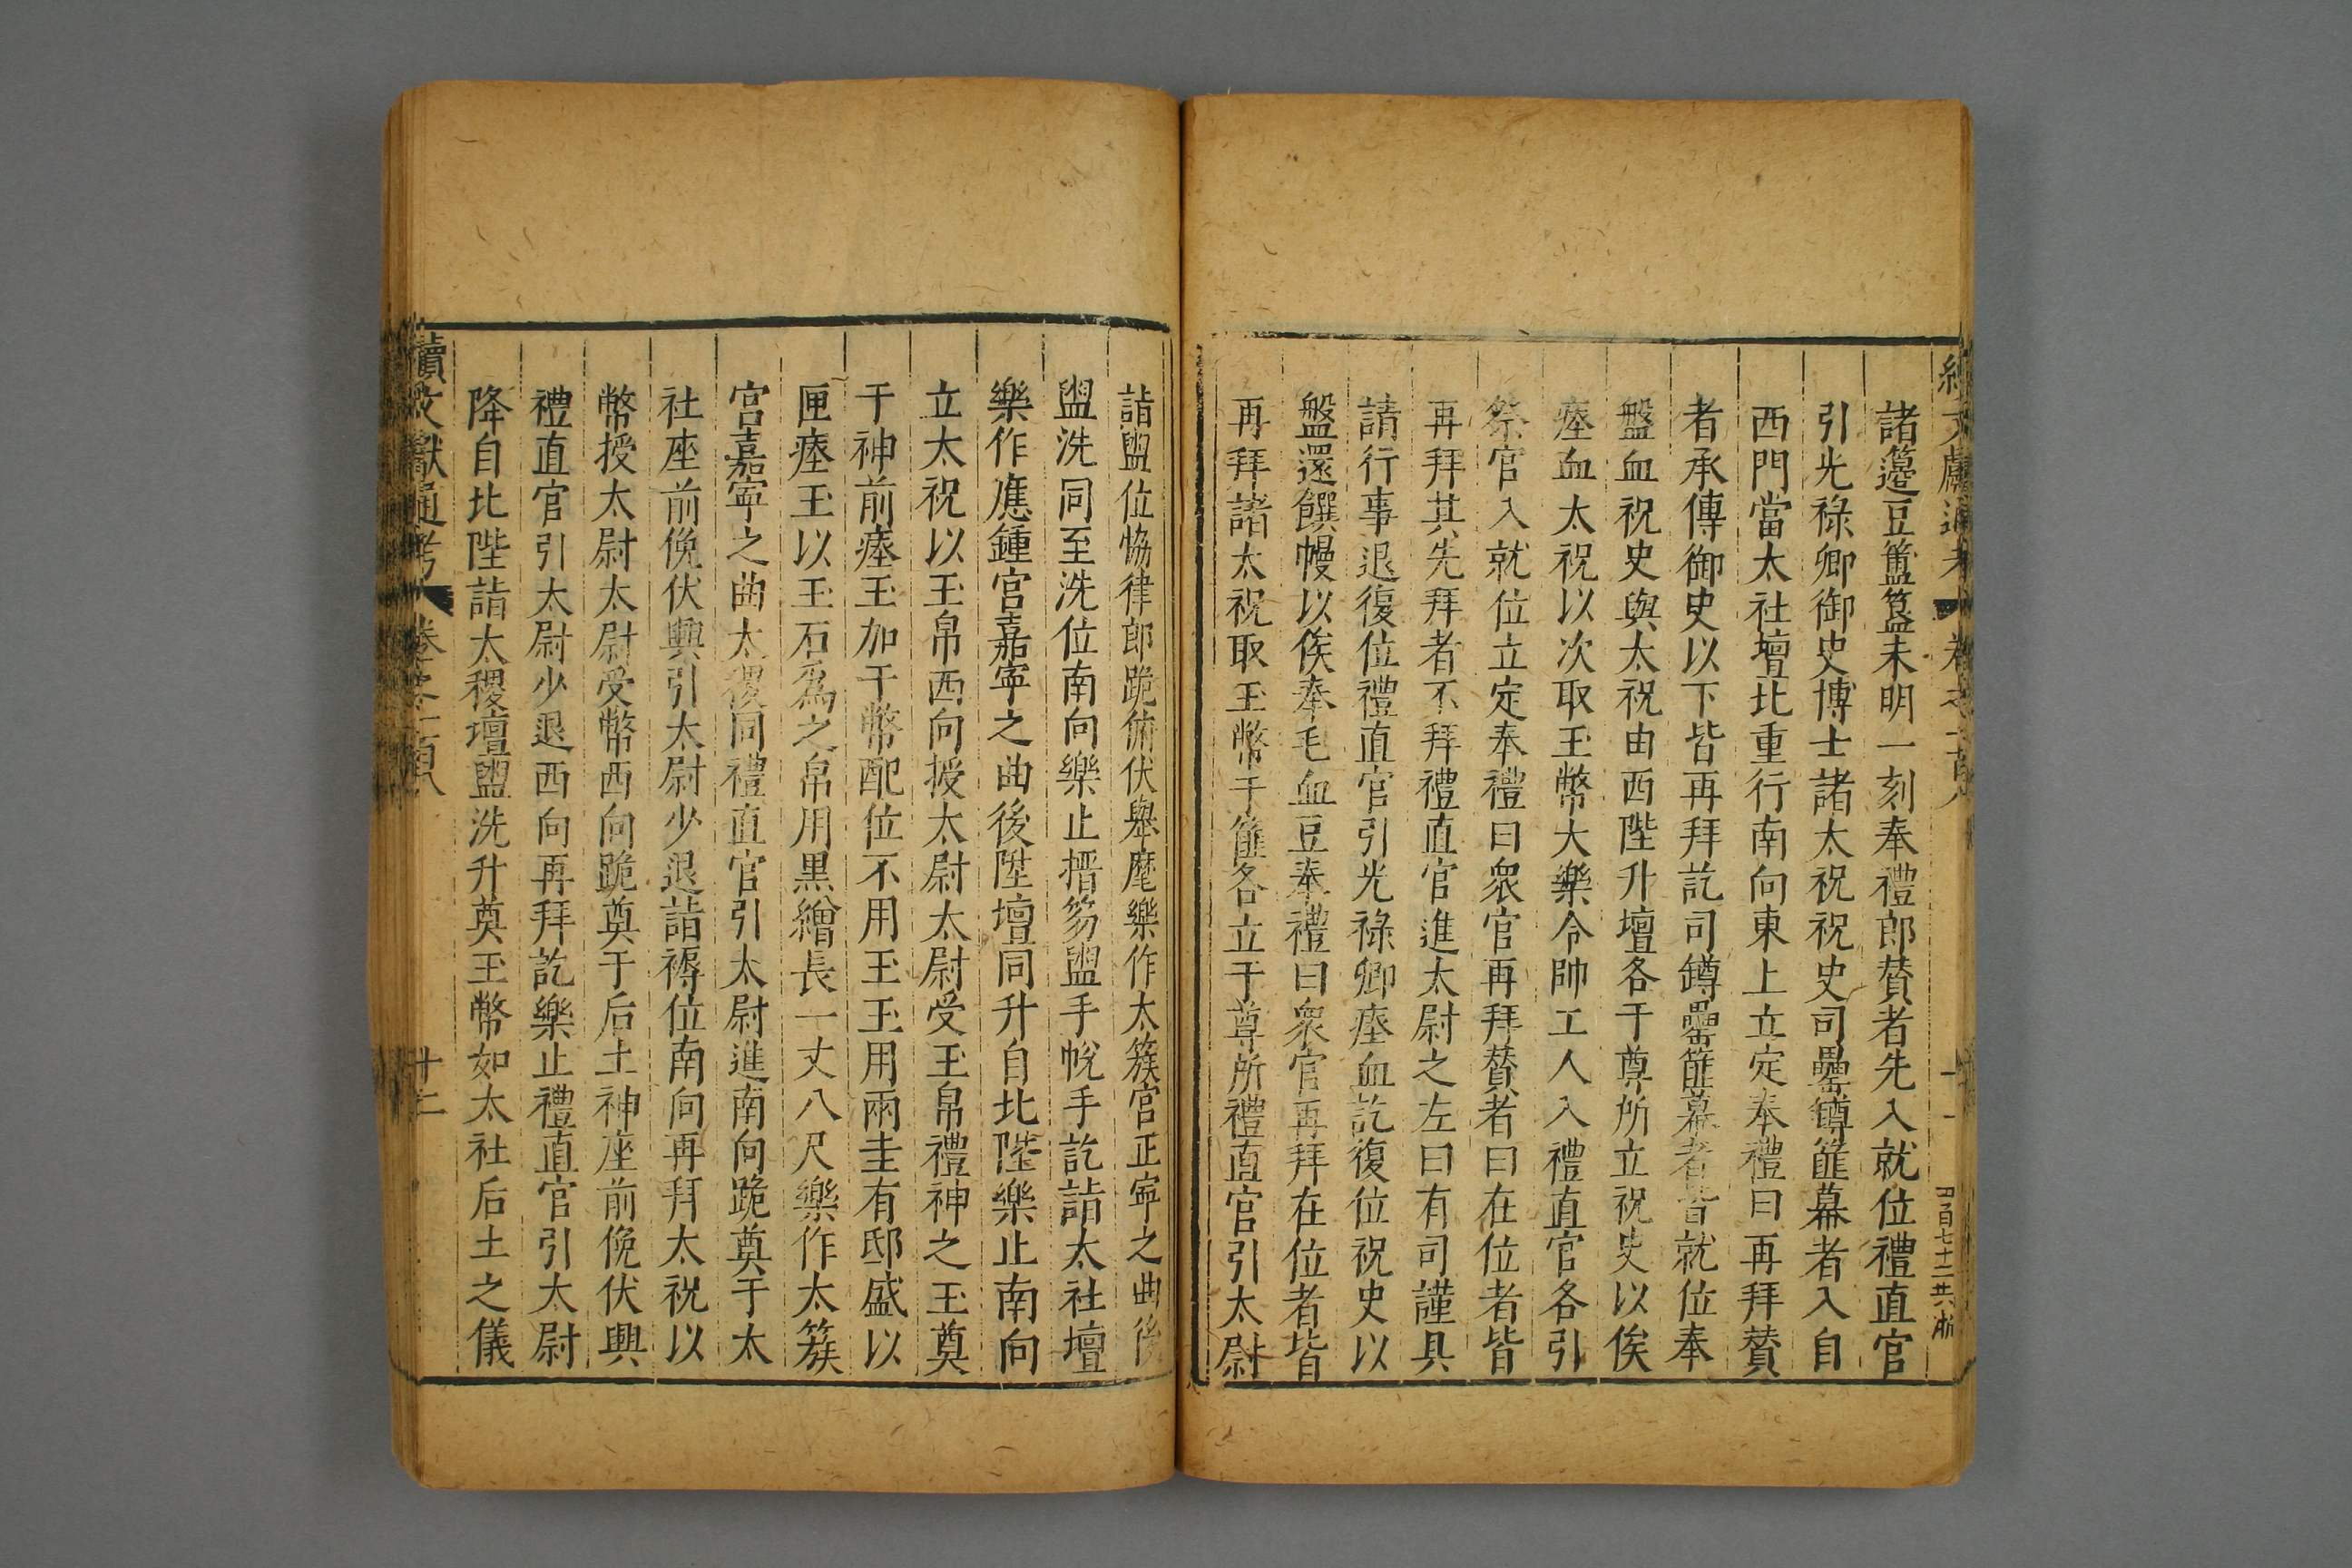 諸籩豆簠簋未明一刻奉禮郎賛者先入就位禮直官
引光祿卿御史博士諸太祝祝史司罍罇篚冪者入自
西門當太社壇北重行南向東上立定奉禮曰再拜賛
者承傳御史以下皆再拜訖司罇罍篚冪者皆就位奉
盤血祝史與太祝由西陛升壇各于尊所立祝史以俟
瘞血太祝以次取玉幣大樂令帥工人入禮直官各引
祭官入就位立定奉禮曰衆官再拜賛者曰在位者皆
再拜其先拜者不拜禮直官進太尉之左曰有司謹具
請行事退復位禮直官引光祿卿瘞血訖復位祝史以
盤還饌幔以俟奉毛血豆奉禮曰衆官再拜在位者皆
再拜諸太祝取玉幣于篚各立于尊所禮直官引太尉
詣盥位恊律郎跪俯伏舉麾樂作太簇宫正寧之曲後
盥洗同至洗位南向樂止搢笏盥手帨手訖詣太社壇
樂作應鍾宫嘉寧之曲後陞壇同升自北陛樂止南向
立太祝以玉帛西向授太尉太尉受玉帛禮神之玉奠
于神前瘞玉加于幣配位不用玉玉用兩圭有邸盛以
匣瘞玉以玉石爲之帛用黒繒長一丈八尺樂作太簇
宫嘉寧之曲太稷同禮直官引太尉進南向跪奠于太
社座前俛伏興引太尉少退詣褥位南向再拜太祝以
幣授太尉太尉受幣西向跪奠于后土神座前俛伏興
禮直官引太尉少退西向再拜訖樂止禮直官引太尉
降自北陛詣太稷壇盥洗升奠玉幣如太社后土之儀
續文獻通考 卷之一百八 十二